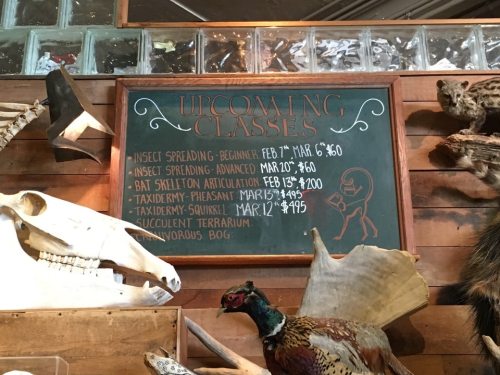 UPCOMING
CLASSES
· INSECT SPREADING - BEGINNER FEB. 7TH, MAR. 6TH $60
· INSECT SPREADING - ADVANCED MAR 20TH, $60
· BAT SKELETON ARTICULATION FEB 13TH, $200
· TAXIDERMY - PHEASANT MAR 13TH $495
· TAXIDERMY - SQUIRREL MAR. 12TH $495
SUCCULENT TERRARIUM
CARNIVOROUS BOG